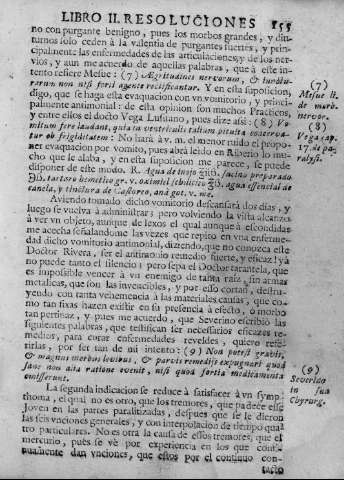 LIBRO II. RESOLUCIONES 155
no con purgante benigno, pues los morbos grandes, y diu-
turnos solo ceden à la valentia de purgantes fuertes, y prin-
cipalmente las enfermedades de las articulaciones, y de los ner-
vios, y aun me acuerdo de aquellas palabras, que à este in-
tento refiere Mesue: (7) Ægritudines nervorum, & iunctu-
rarum non nisi forti agente rectificantur. Y en esta suposicion,
digo, que se haga esta evacuacion con vn vomitorio, y princi-
palmente antimonial: de esta opinion son muchos Practicos,
y entre ellos el docto Vega Lusitano, pues dize assi: (8) Vo-
mitum fere laudant, quia ta ventriculi talium pituita coacerva-
tur ob frigiditatem: No hará à v. m. el menor ruido el propo-
ner evacuacion por vomito, pues abrá leido en Riberio lo mu-
cho que le alaba, y en esta suposicion me parece, se puede
disponer de este modo. R. Agua de
tartaro hemetico gr. v. oximiel
canela, y tinctura de Castoreo, ana got. v. me.
Aviendo tomado dicho vomitorio descansará dos dias, y
luego se vuelva à administrar; pero volviendo la vista alcanza
à ver vn objeto, aunque de lexos el qual aunque à escondidas
me acecha señalandome las vezes que repito en vna enferme-
dad dicho vomitorio antimonial, diziendo, que no conozca este
Doctor Rivera, ser el antimonio remedio fuerte, y eficaz! yà
no puede tanto el silencio; pero sepa el Doctor tarantela, que
es impossible vencer à vn enemigo de tanta raiz, sin armas
metalicas, que son las invencibles, y por esso cortan, destru-
yendo con tanta vehemencia à las materiales causas, que co-
mo tan fixas hazen existir en su presencia à efecto, ò morbo
tan pertinaz, y pues me acuerdo, que Severino escribiò las
siguientes palabras, que testifican ser necessarios eficaces re-
medios, para curar enfermedades reveldes, quiero refe-
rirlas, por ser tan de mi intento: (9) Non potest gravis,
& magnus morbus levibus, & parvis remedijs expugnari quod
sane non alia ratione evenit, nisi quod fortia medicamenta
omisserunt.
La segunda indicacion se reduce à satisfacer à vn symp-
thoma, el qual no es otro, que los tremores, que padece esse
Joven en las partes paralitizadas, despues que se le dieron
las seis vnciones generales, y con interpolacion de tiempo qua-
tro particulares. No es otra la causa de essos tremores, que el
mercurio, pues se vè por experiencia en los que conti-
nuamente dan vnciones, que estos por el continuo con-
tacto
(7)
Mesue li.
de morb.
nervor.
(8)
Vega cap.
17. de pa-
ralysi.
(9)
Severino
in sua
Chyrurg.